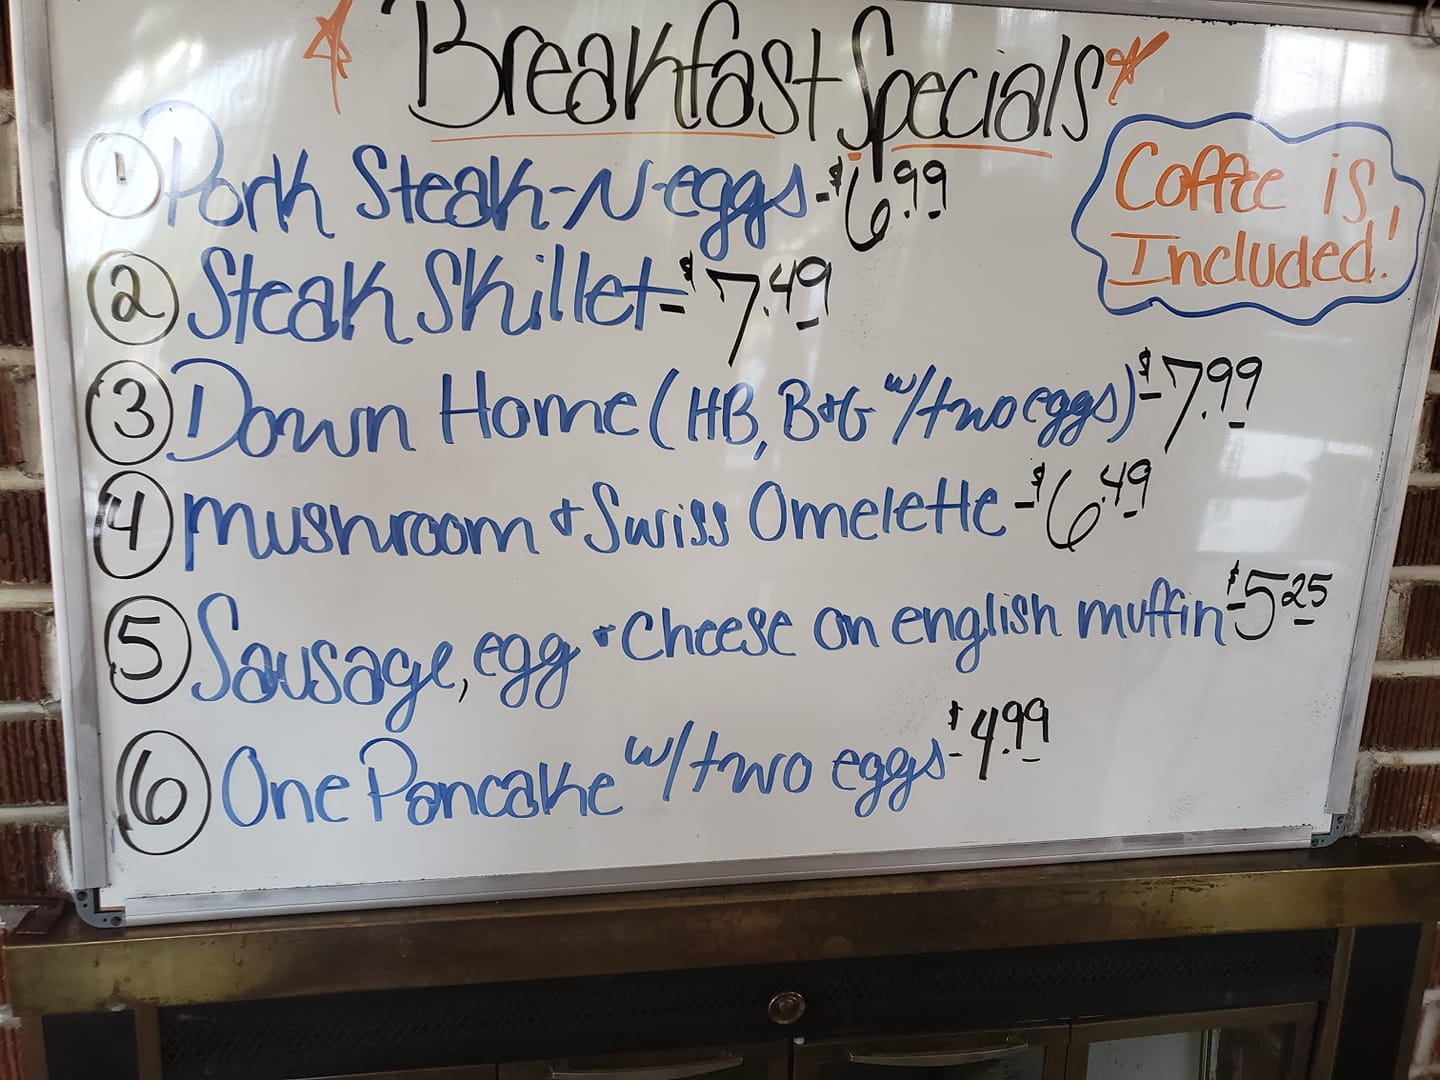 Breakfast Specials
Coffee is
Included!
1 Pork Steak-N-eggs - $6.99
2 Steak Skillet - $7.49
3 Down Home (HB, B+G w/two eggs) - $7.99
4 mushroom + Swiss Omelette - $6.49
5 Sausage, egg + Cheese on english muffin - $5.25
6 One Pancake w/two eggs - $4.99